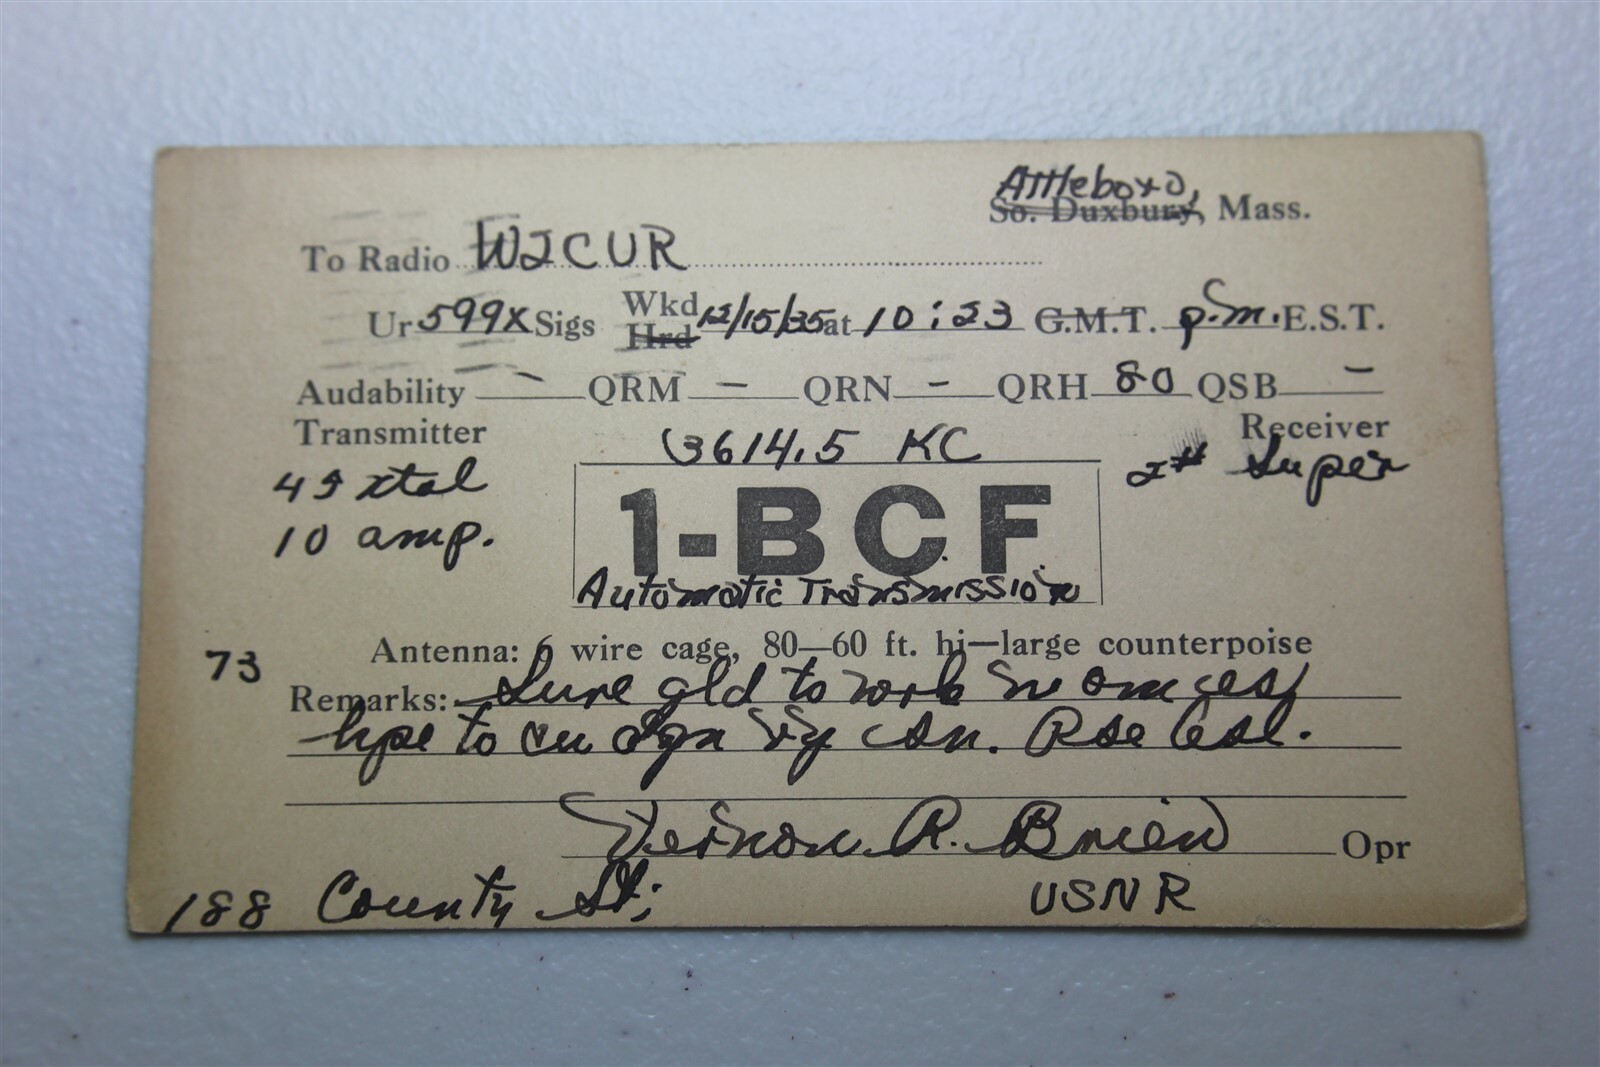 Attleboro,
So. Duxbury, Mass.
To Radio W2CUR
Ur 599X Sigs Wkd Hrd 12/15/35 at 10:23 G.M.T. p.m. E.S.T.
Audability - QRM - QRN - QRH 80 QSB -
Transmitter 3614.5 KC Receiver
45 xtal 2# Super
10 amp.
1-BCF
Automatic Transmission
73 Antenna: 6 wire cage, 80—60 ft. hi—large counterpoise
Remarks: Sure gld to work u om es
hpe to cu agn vy sn. Pse Qsl.
Vernon R. Brien Opr
188 County St; USNR